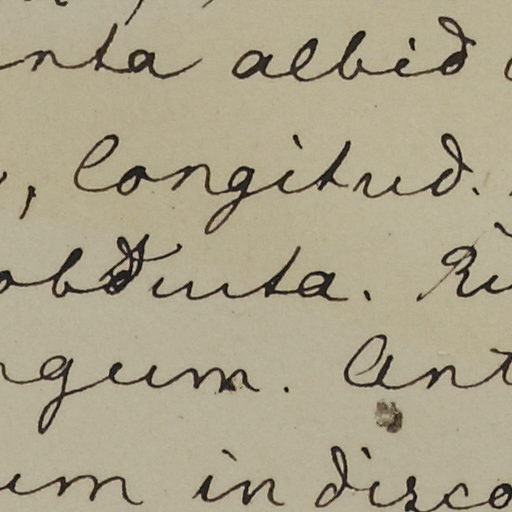 nta albid
, longitud.
obtecta. Ri
ngum. Ant
um in disco